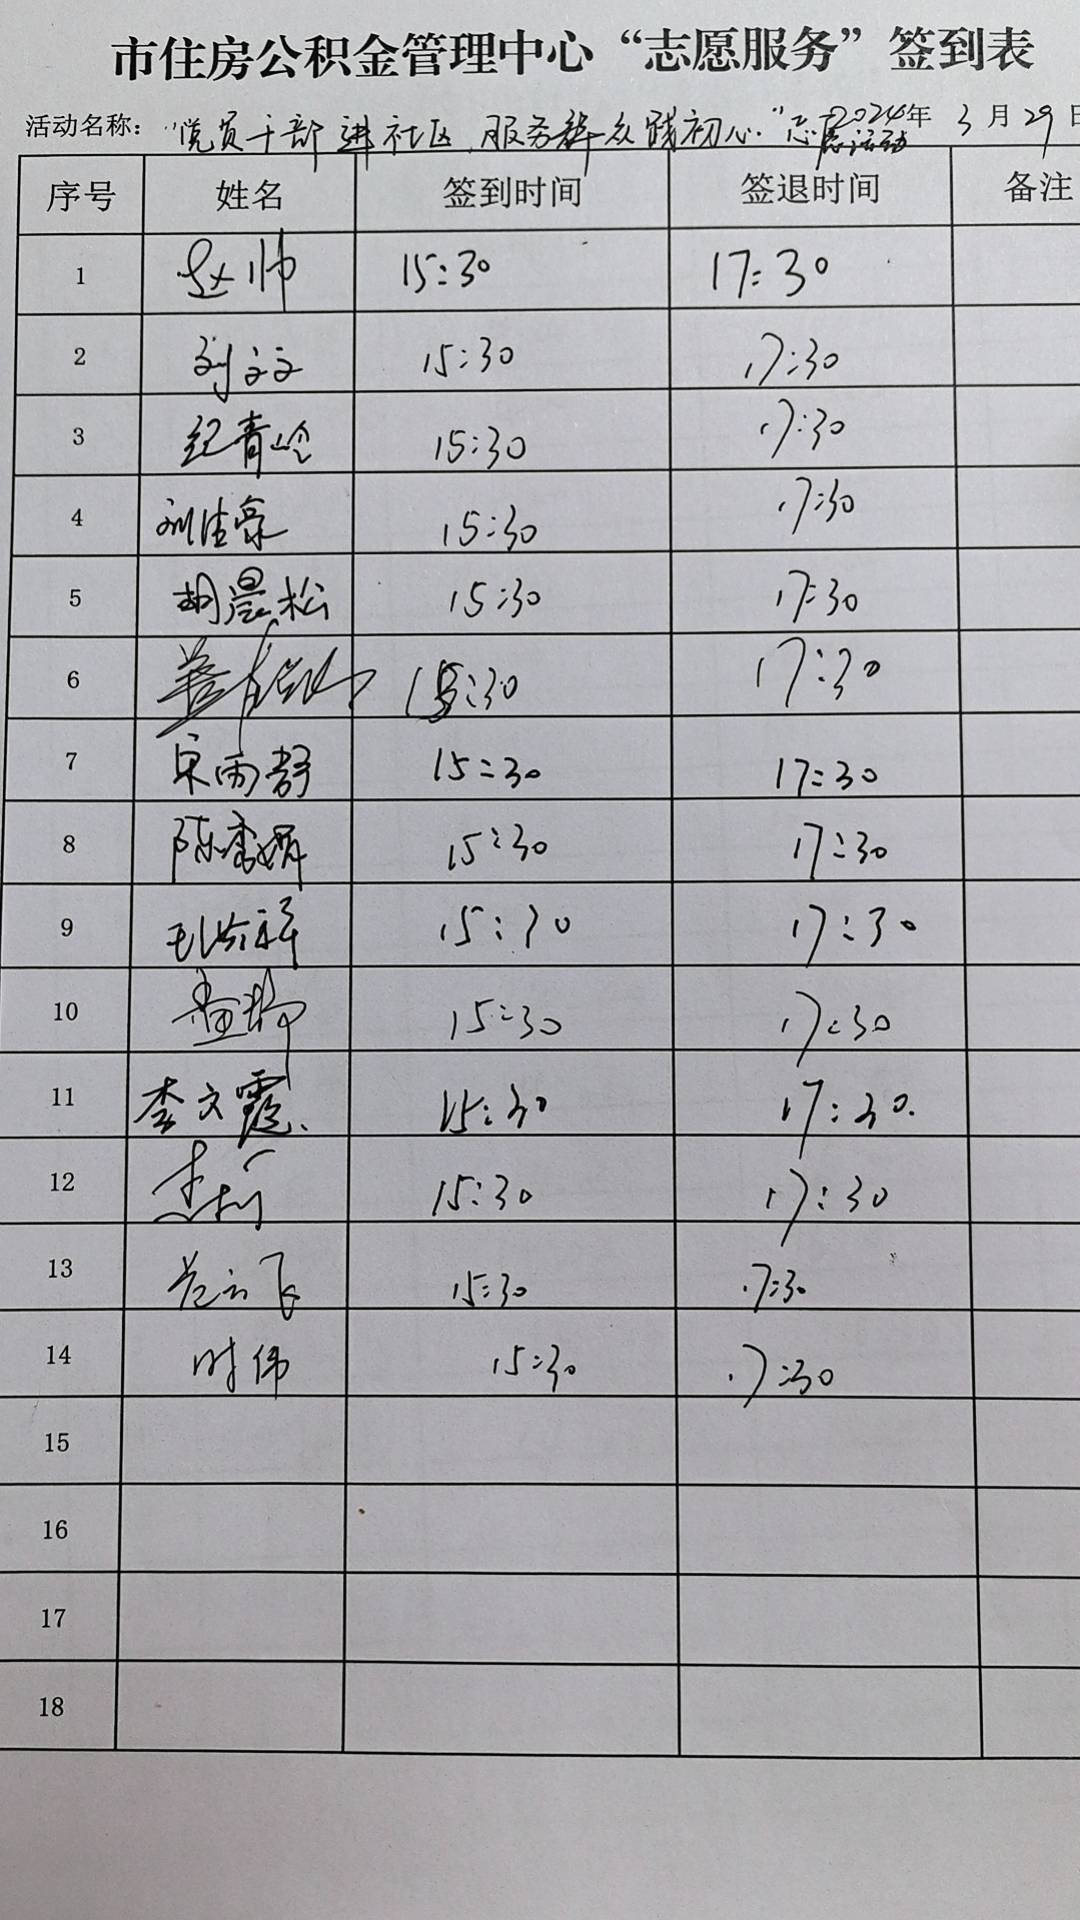 市住房公积金管理中心“志愿服务”签到表
活动名称: “党员干部进社区,服务群众践初心”志愿活动 2024年 3月29日
序号 姓名 签到时间 签退时间 备注
1 赵帅 15:30 17:30
2 刘文文 15:30 17:30
3 纪青岭 15:30 17:30
4 刘佳豪 15:30 17:30
5 胡晨松 15:30 17:30
6 15:30 17:30
7 宋雨静 15:30 17:30
8 陈秀娟 15:30 17:30
9 15:30 17:30
10 15:30 17:30
11 李文霞 15:30 17:30
12 15:30 17:30
13 范云飞 15:30 17:30
14 时伟 15:30 17:30
15
16
17
18